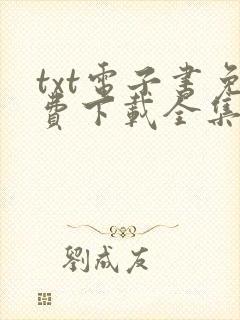 txt電子書免
費下載全集
劉成友